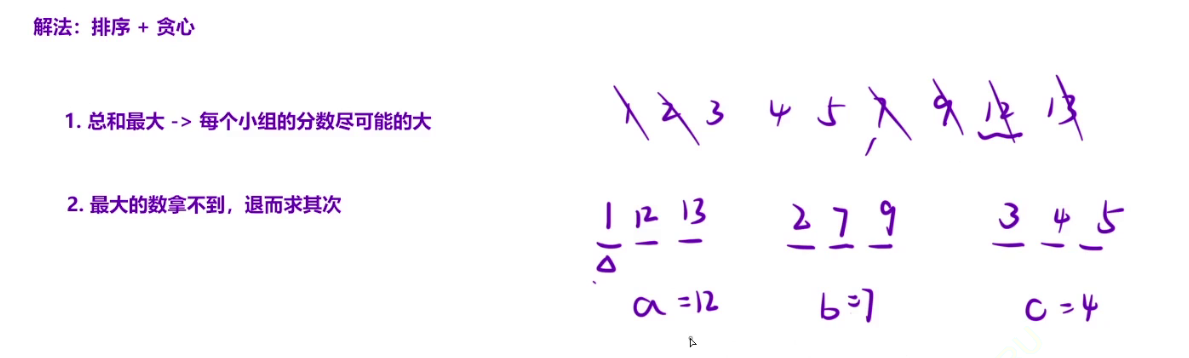 解法：排序 + 贪心
1. 总和最大 -> 每个小组的分数尽可能的大
2. 最大的数拿不到，退而求其次
1 2 3 4 5 7 9 12 13
1 12 13 2 7 9 3 4 5
a=12 b=7 c=4